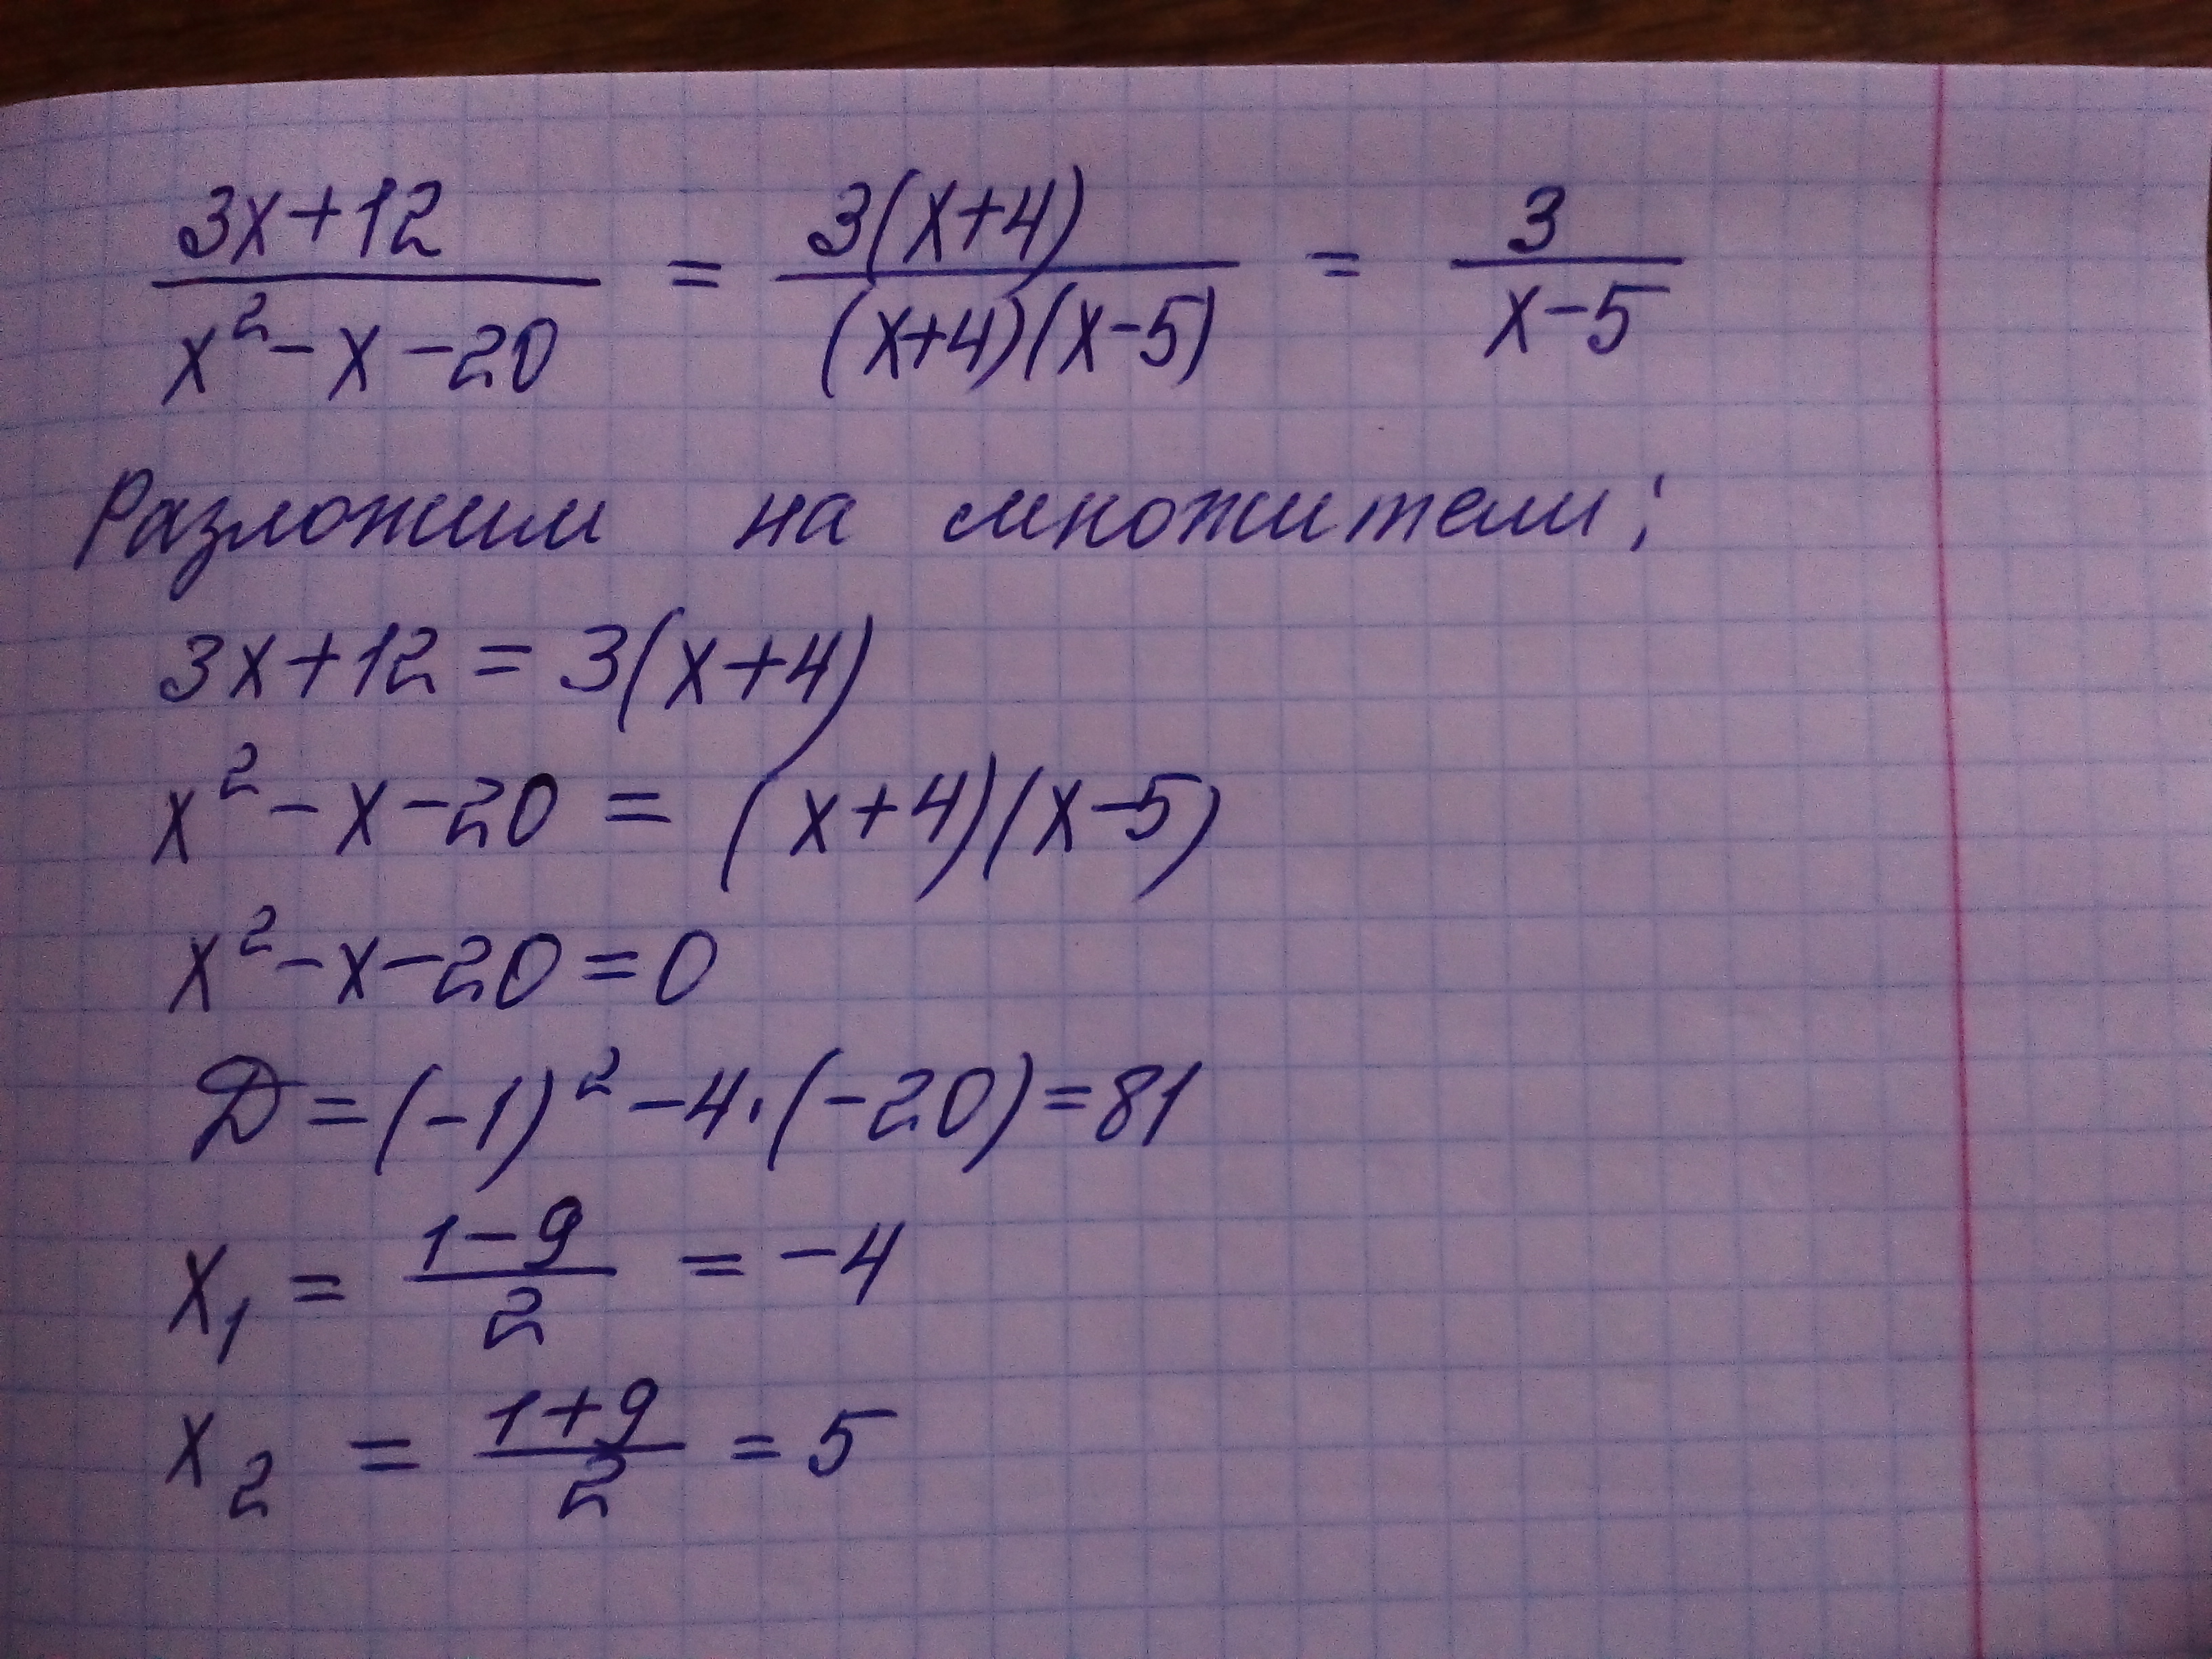 (3x+12)/(x²-x-20) = 3(x+4)/((x+4)(x-5)) = 3/(x-5)
Разложим на множители:
3x+12=3(x+4)
x²-x-20 = (x+4)(x-5)
x²-x-20=0
Д=(-1)²-4·(-20)=81
x₁ = (1-9)/2 = -4
x₂ = (1+9)/2 = 5